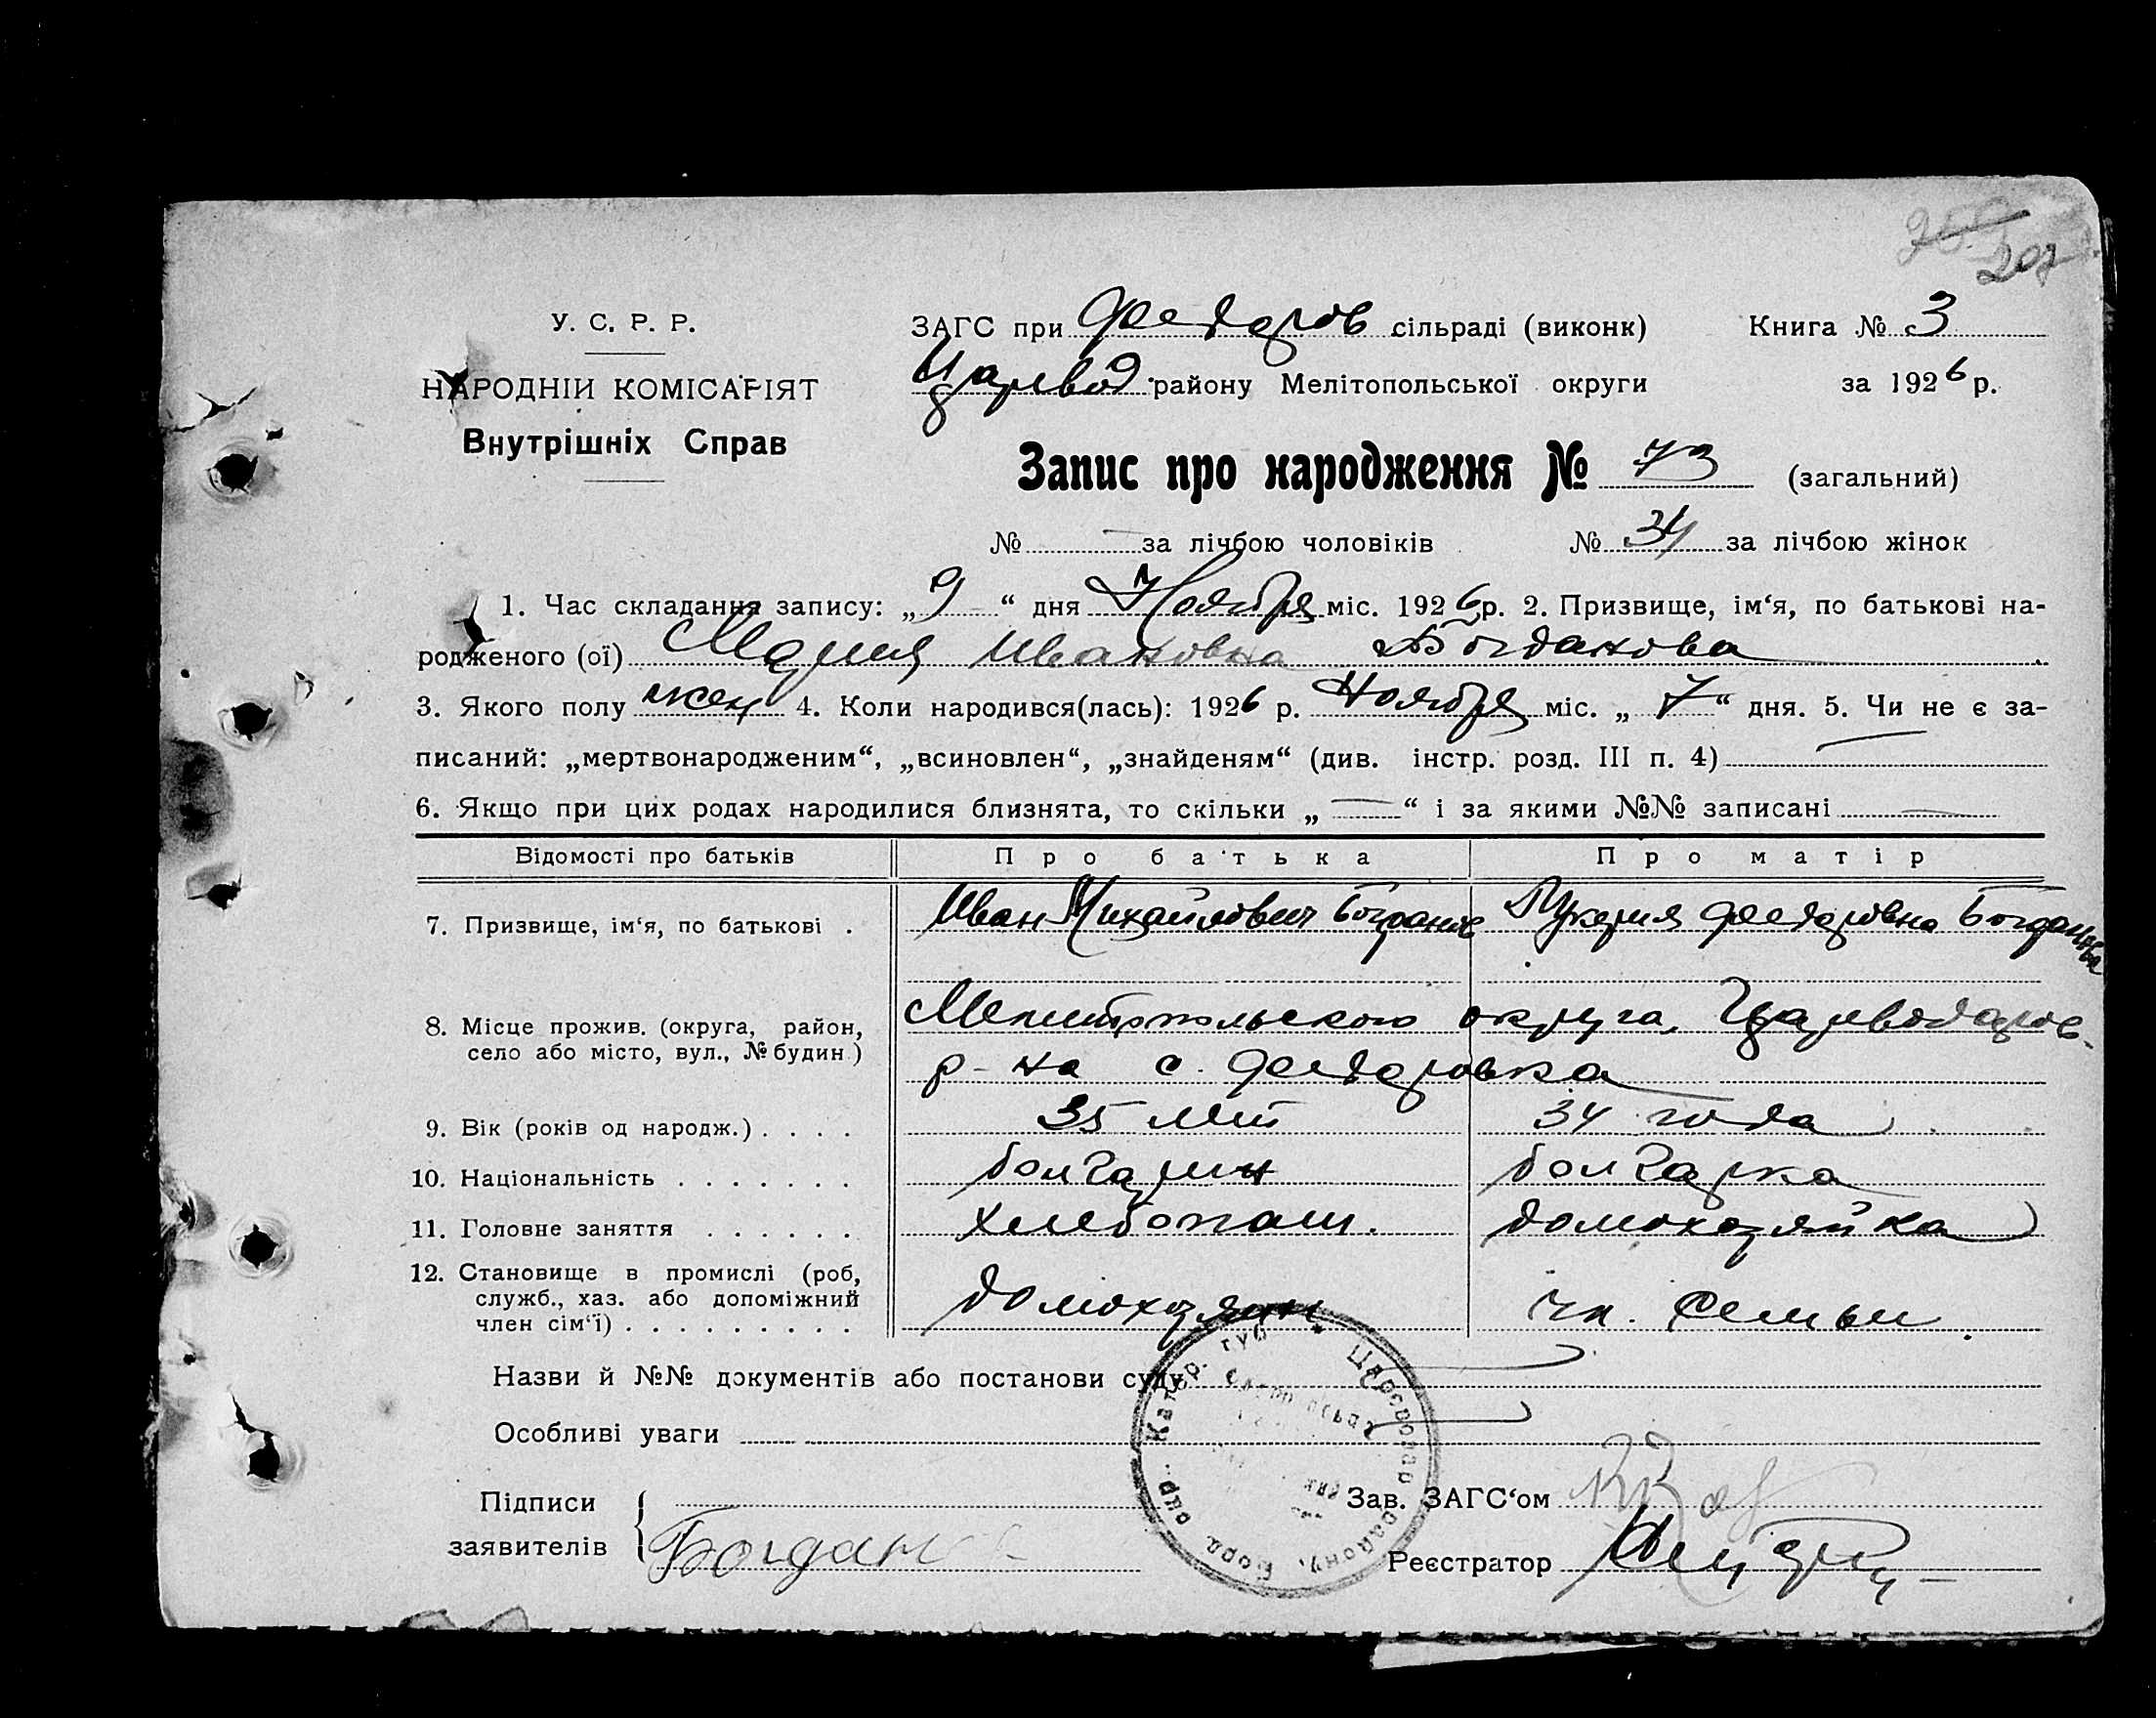 207
У. С. Р. Р.
ЗАГС при Федоров сільраді (виконк)
Книга № 3
НАРОДНІЙ КОМІСАРІЯТ
Царевод. району Мелітопольської округи
за 1926 р.
Внутрішніх Справ
Запис про народження № 73 (загальний)
№ — за лічбою чоловіків № 34 за лічбою жінок
1. Час складання запису: „9“ дня Ноября міс. 1926 р. 2. Призвище, ім‘я, по батькові на-
родженого (ої) Мария Ивановна Богданова
3. Якого полу жен 4. Коли народився(лась): 1926 р. Ноября міс. „7“ дня. 5. Чи не є за-
писаний: „мертвонародженим“, „всиновлен“, „знайденям“ (див. інстр. розд. III п. 4) —
6. Якщо при цих родах народилися близнята, то скільки „—“ і за якими №№ записані —
Відомості про батьків
Про батька
Про матір
7. Призвище, ім‘я, по батькові .
Иван Михайлович Богданов
Лукерия Федоровна Богданова
8. Місце прожив. (округа, район,
село або місто, вул., № будин.)
Мелитопольского округа, Цареводаров-
р-на с. Федоровка
9. Вік (років од народж.) . . . .
35 лет
34 года
10. Національність . . . . . . .
болгарин
болгарка
11. Головне заняття . . . . . .
хлебопаш.
домохозяйка
12. Становище в промислі (роб,
служб., хаз. або допоміжний
член сім‘ї) . . . . . . . . .
домохозяин
чл. семьи
Назви й №№ документів або постанови суду
Особливі уваги
Підписи
заявителів
Богданов
Зав. ЗАГС‘ом
Реєстратор